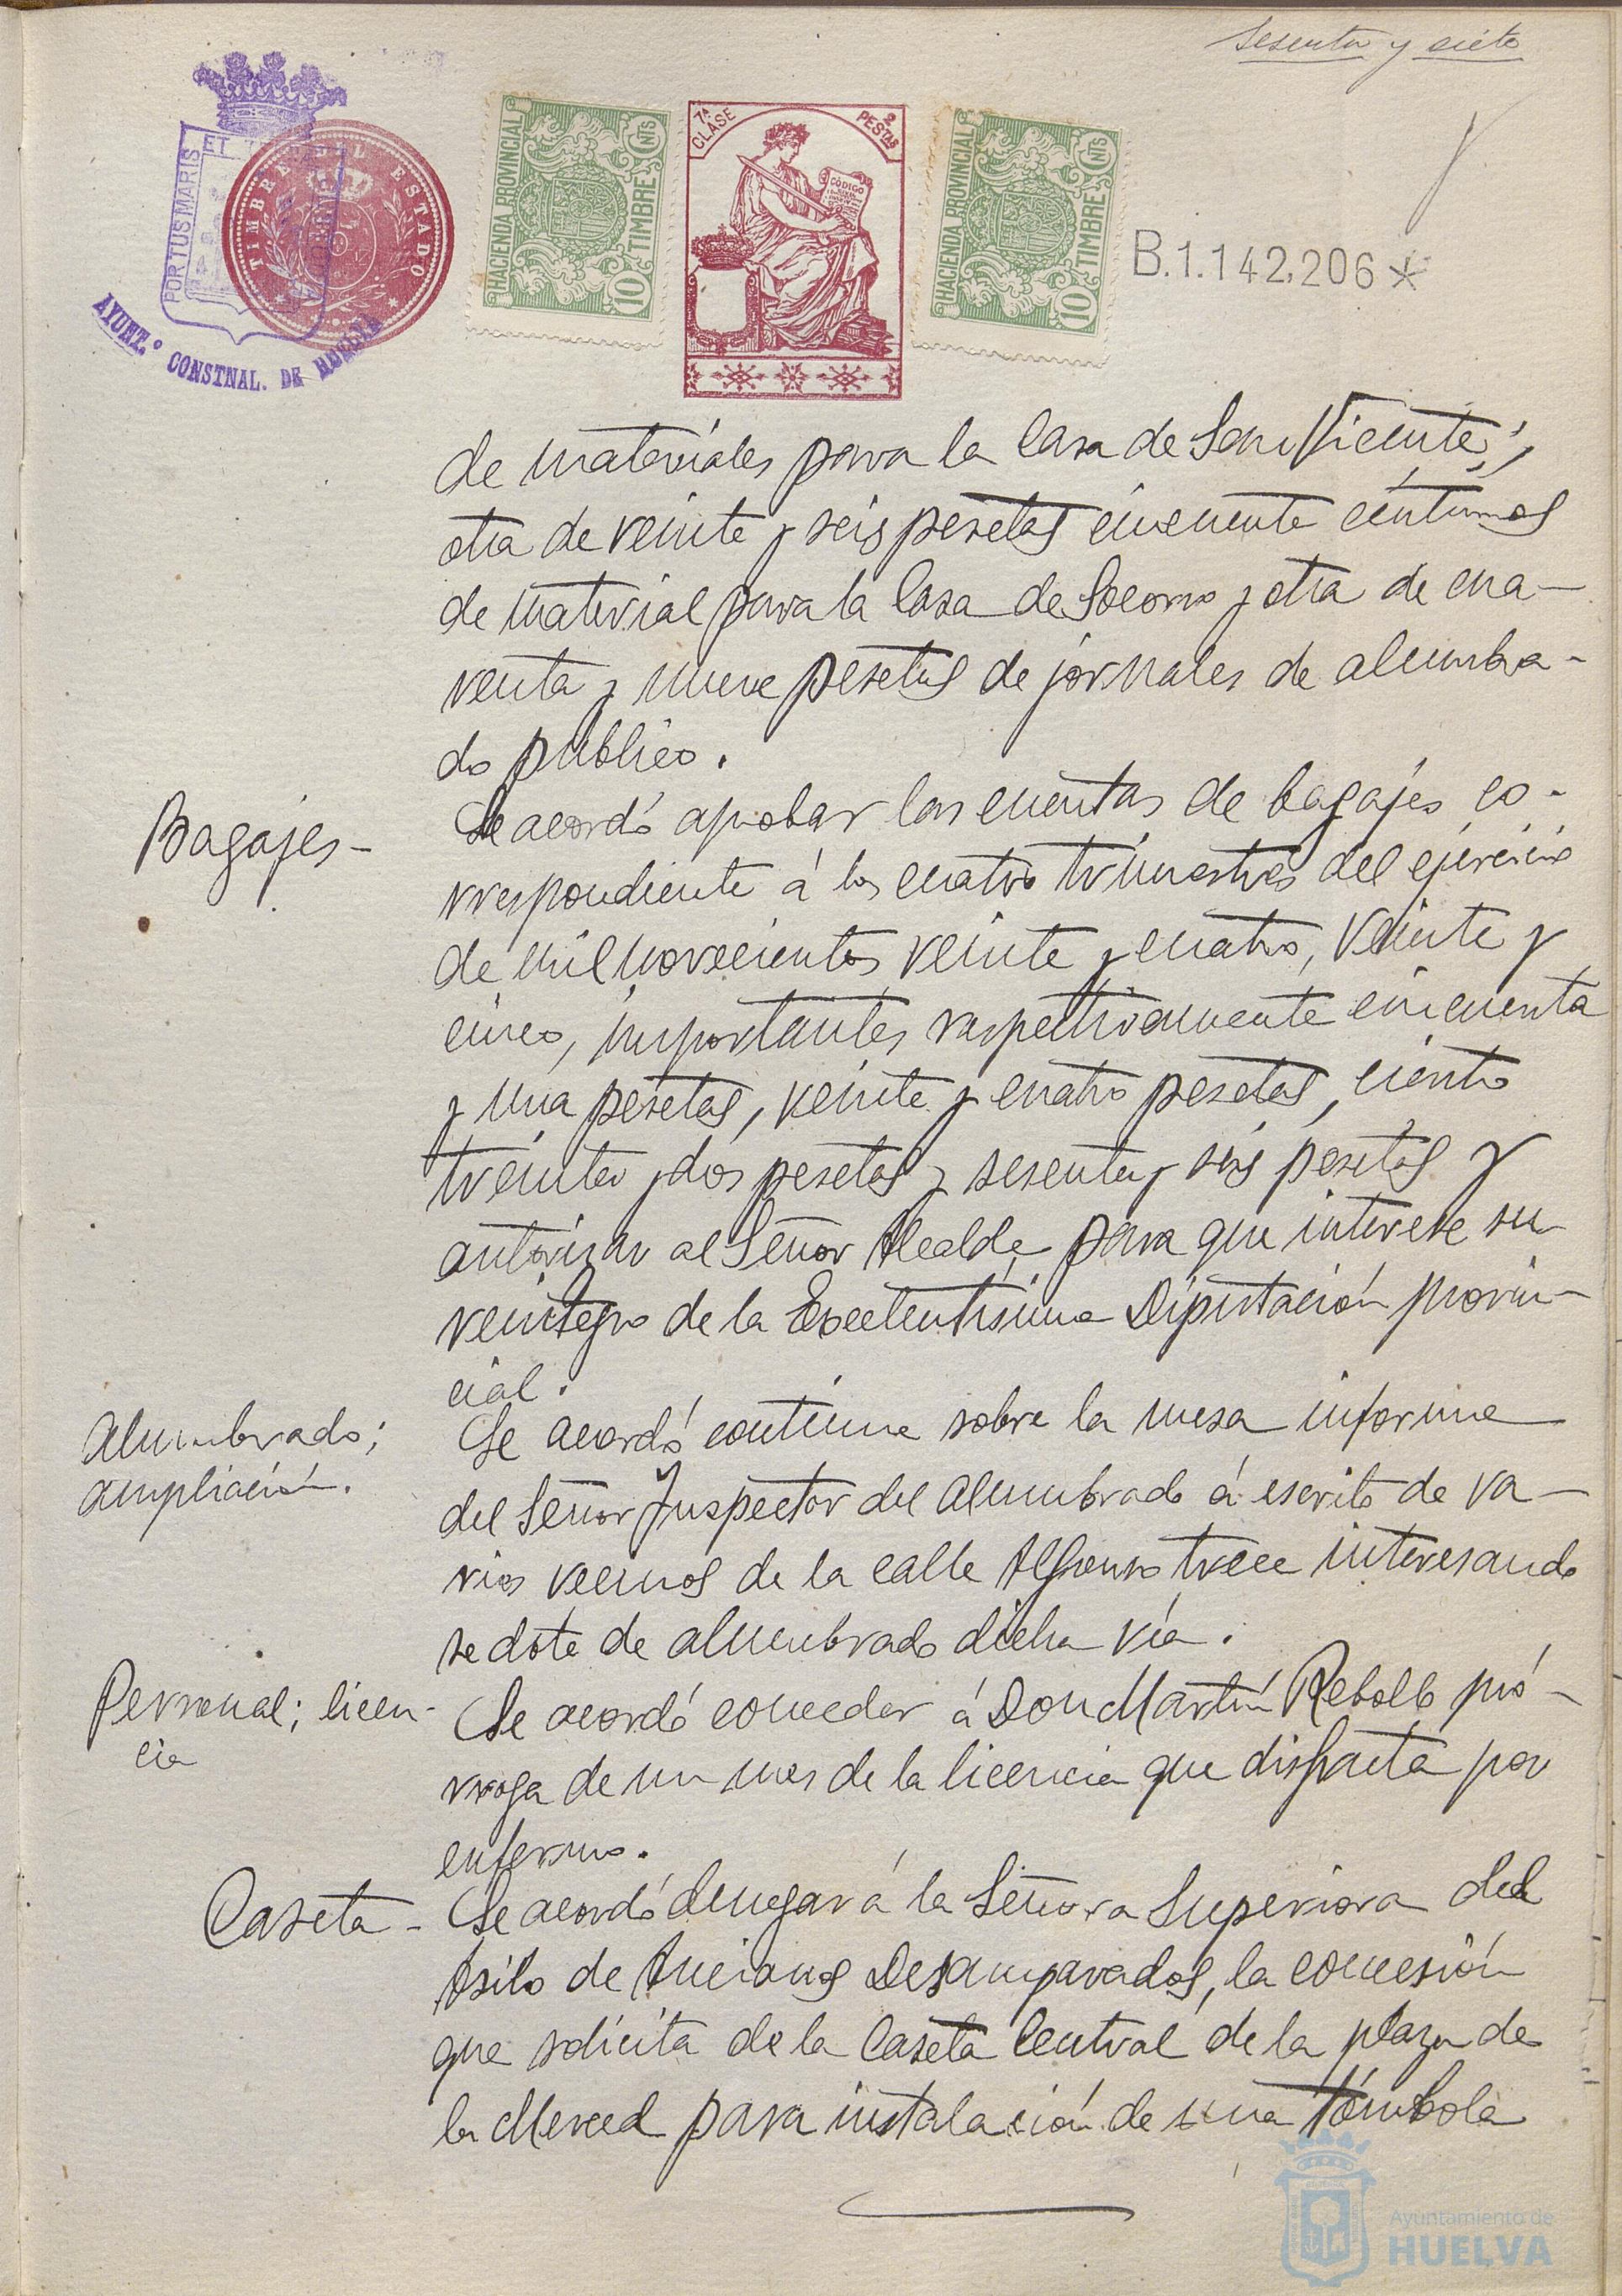 Sesenta y siete
PORTUS MARIS ET
AYUNT.º CONSTNAL. DE HUELVA
TIMBRE DEL ESTADO
HACIENDA PROVINCIAL
10 CNTS
TIMBRE
7ª CLASE
2 PESTAS
CÓDIGO
HACIENDA PROVINCIAL
10 CNTS
TIMBRE
B.1.142,206*
de materiales para la Casa de San Vicente;
otra de veinte y seis pesetas cincuenta céntimos
de material para la Casa de Socorro y otra de cua-
renta y nueve pesetas de jornales de alumbra-
do público.
Bagajes- Se acordó aprobar las cuentas de bagajes co-
rrespondiente á los cuatro trimestres del ejercicio
de mil novecientos veinte y cuatro, veinte y
cinco, importantes respectivamente cincuenta
y una pesetas, veinte y cuatro pesetas, ciento
treinta y dos pesetas y sesenta y seis pesetas y
autorizar al Señor Alcalde para que interese su
reintegro de la Excelentísima Diputación provin-
cial.
Alumbrado; Se acordó continue sobre la mesa informe
ampliación. del Señor Inspector del alumbrado á escrito de va-
rios vecinos de la calle Alfonso trece interesando
se dote de alumbrado dicha vía.
Personal; licen- Se acordó conceder á Don Martín Rebollo pró-
cia rroga de un mes de la licencia que disfruta por
enfermo.
Caseta- Se acordó denegar á la Señora Superiora del
Asilo de Ancianos Desamparados, la concesión
que solicita de la Caseta Central de la plaza de
la Merced para instalación de una tómbola
Ayuntamiento de
HUELVA